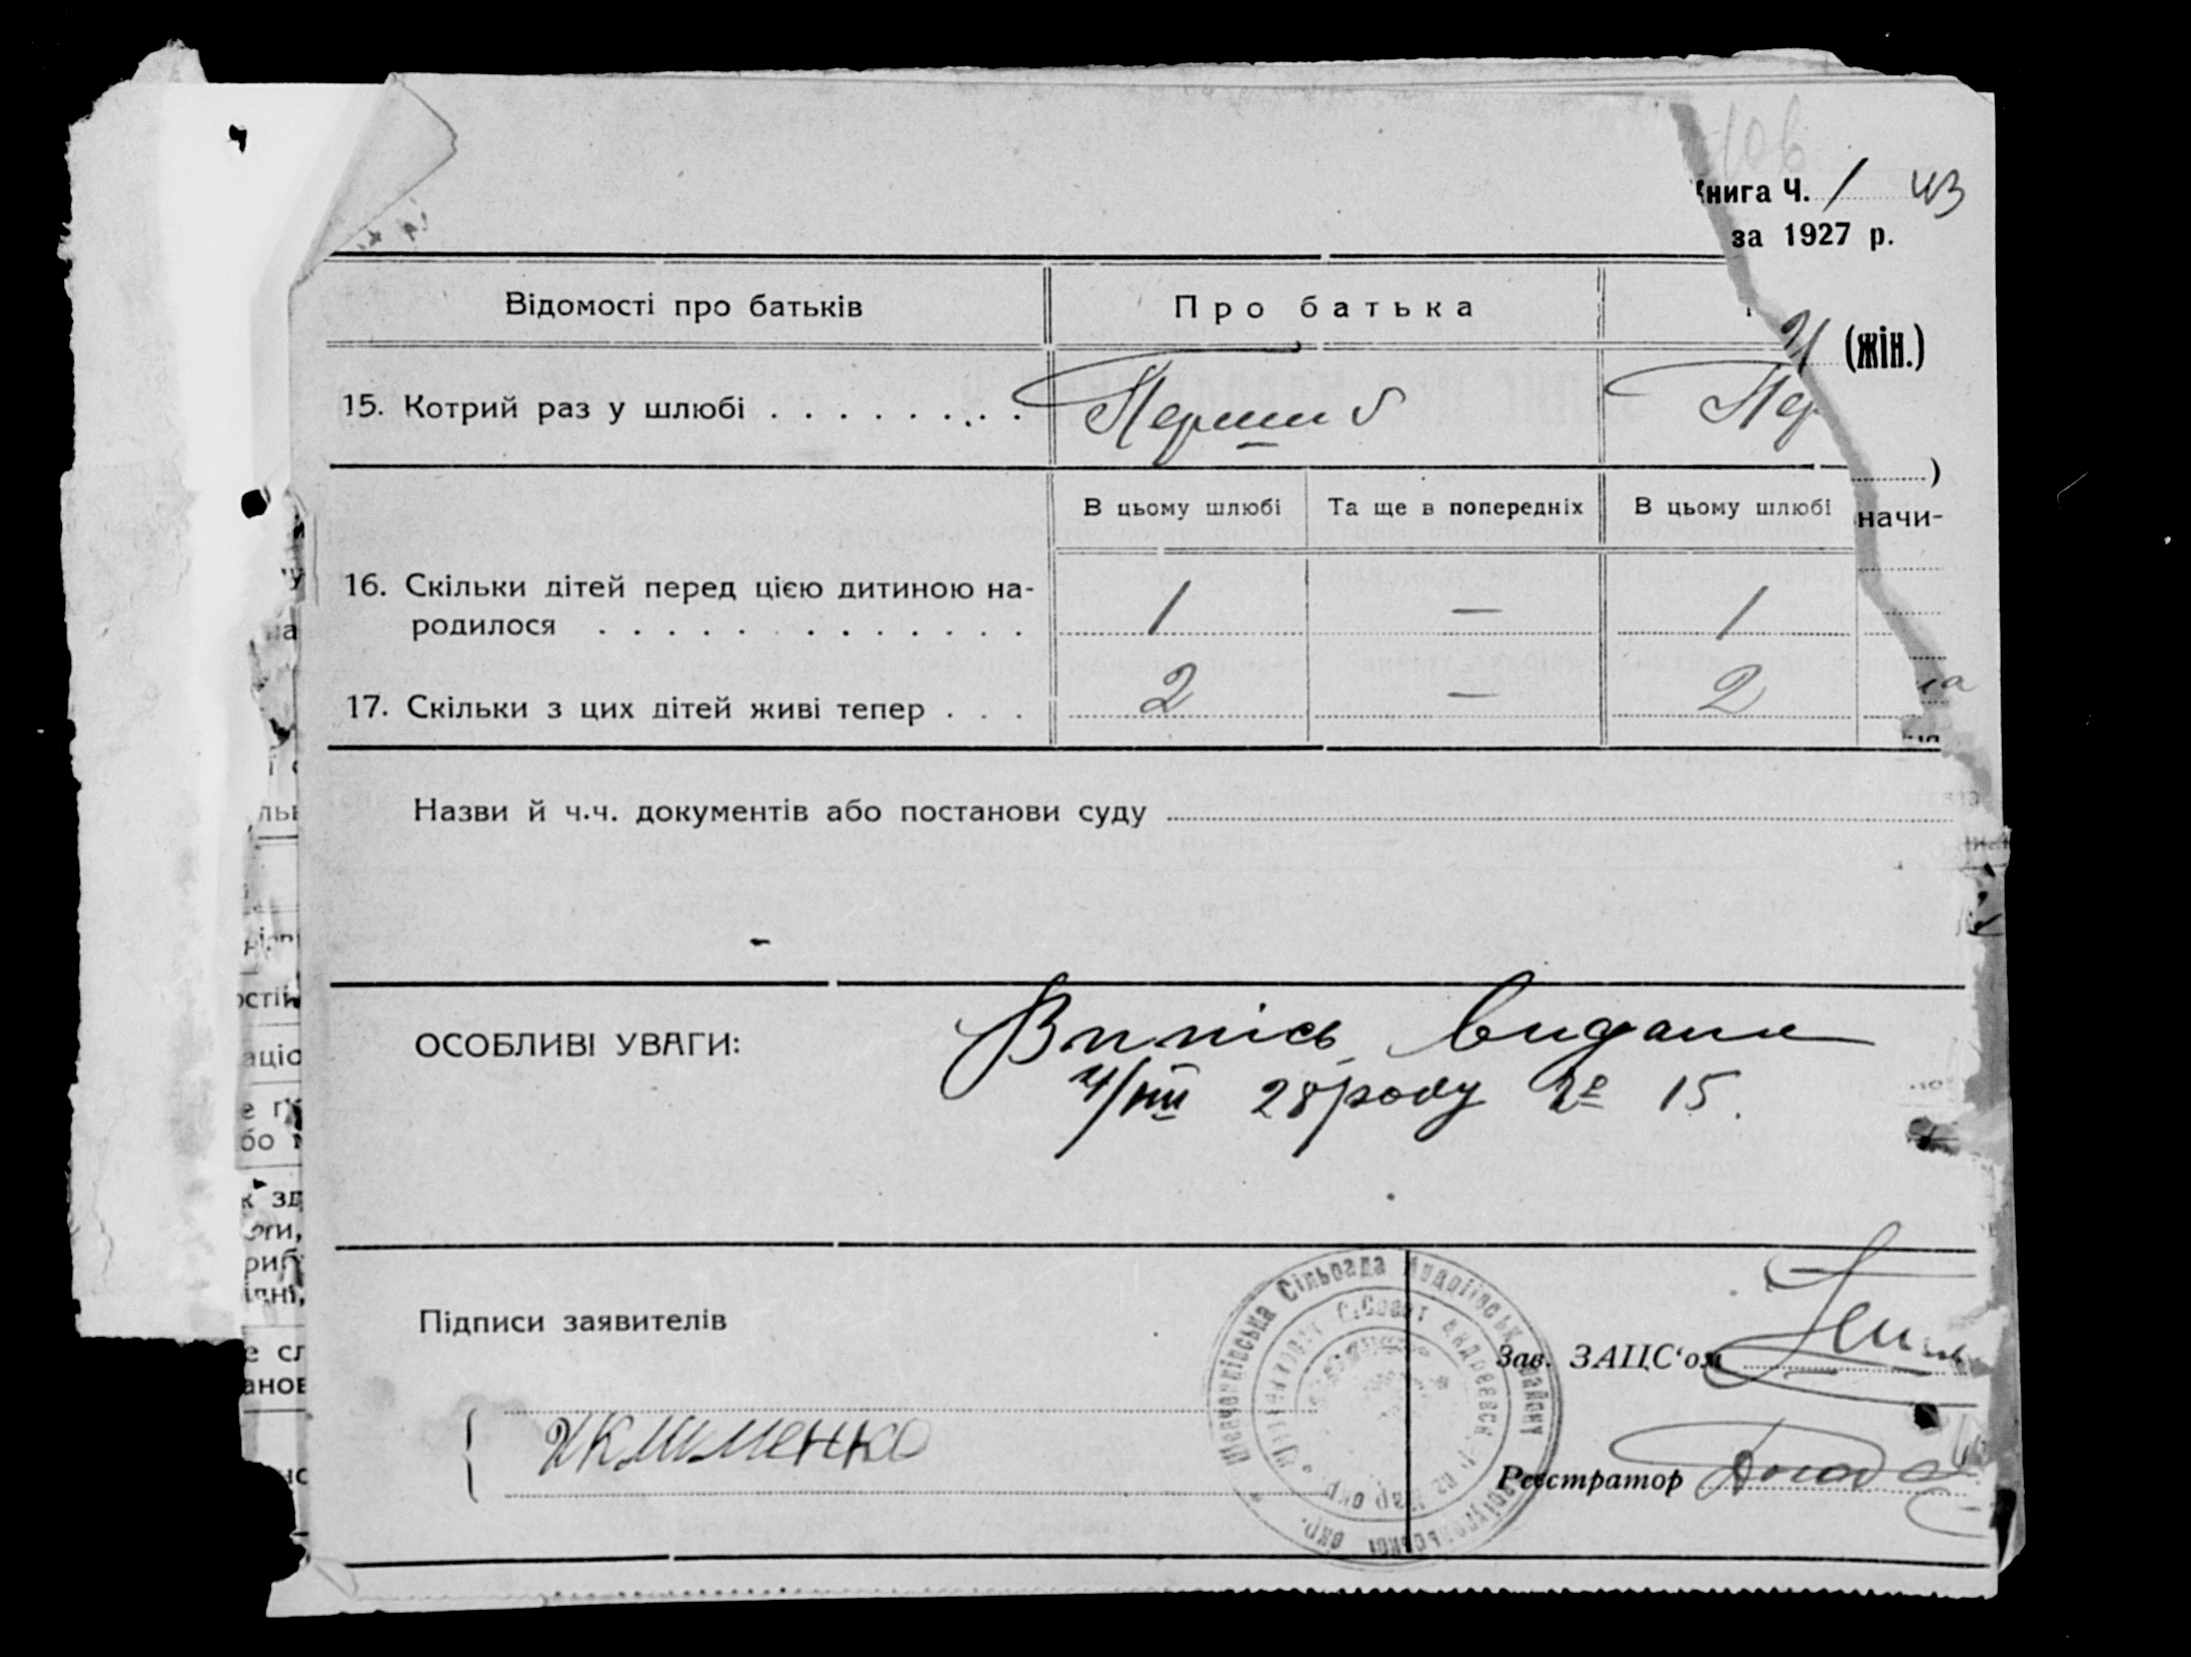 нига Ч. 1 43
за 1927 р.
Відомості про батьків
Про батька
(жін.)
15. Котрий раз у шлюбі . . . . . . . .
Перший
Пер
)
В цьому шлюбі
Та ще в попередніх
В цьому шлюбі
начи-
16. Скільки дітей перед цією дитиною на-
родилося . . . . . . . . . . . . .
1
—
1
17. Скільки з цих дітей живі тепер . . .
2
—
2
Назви й ч.ч. документів або постанови суду
ОСОБЛИВІ УВАГИ:
Виписъ видана
4/VIII 28 року № 15.
Підписи заявителів
Шевченківська Сільрада Андріївськ. району Маріупольської окр.
Зав. ЗАЦС‘ом
Клименко
Реєстратор